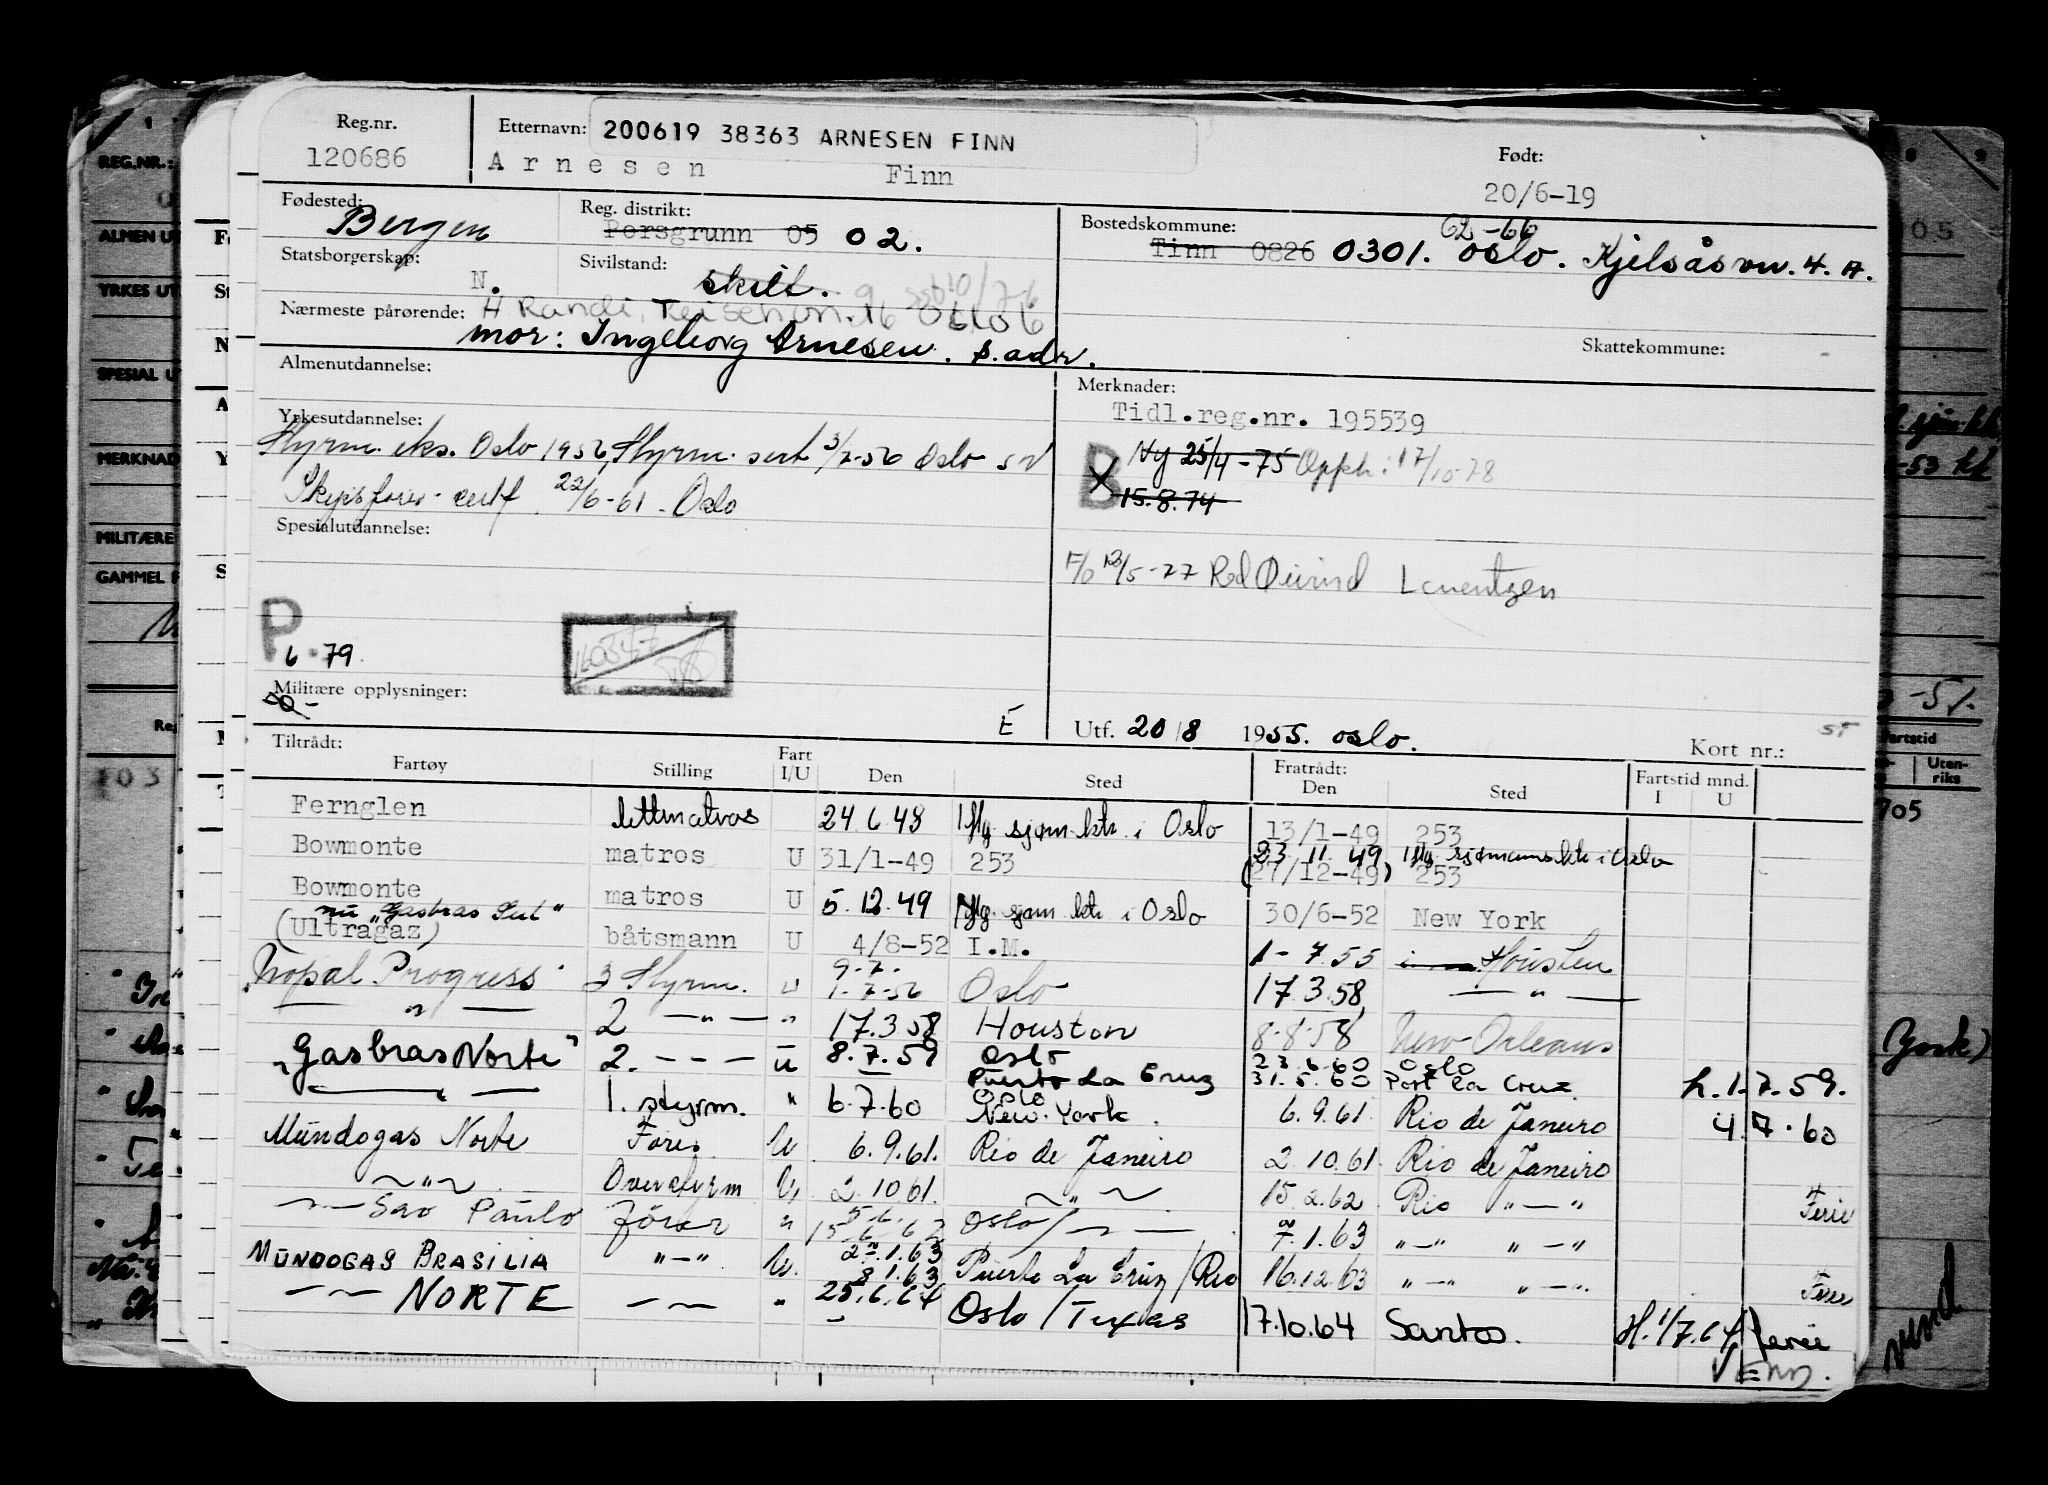 Reg.nr.
120686
Etternavn: 200619 38363 ARNESEN FINN
Arnesen Finn
Født:
20/6-19
Fødested: Bergen
Reg. distrikt: Porsgrunn 05 02.
Bostedskommune: 62-66
Tinn 0826 0301. Oslo. Kjelsåsvn. 4. A.
Statsborgerskap: N.
Sivilstand: skilt.
Nærmeste pårørende: H Randi,
mor: Ingeborg Arnesen. s. adr.
Skattekommune:
Almenutdannelse:
Merknader:
Tidl.reg.nr. 195539
Yrkesutdannelse:
Styrm. eks. Oslo 1956, Styrm. sert 3/7-56 Oslo
Skipsfører-sertf. 22/6-61. Oslo
B Ny 25/4-75 Opph: 17/10-78
15.8.74
Spesialutdannelse:
F/O 13/5-77 Red Øivind Lorentzen
P
6-79
Militære opplysninger:
E
Utf. 20/8 1955. Oslo.
Kort nr.:
Tiltrådt:
Fartøy Stilling Fart I/U Den Sted Fratrådt: Den Sted Fartstid mnd. I U
Fernglen lettmatros 24.6.48 sjøm.ktr. i Oslo 13/1-49 253
Bowmonte matros U 31/1-49 253 23.11.49 sjømannsktr i Oslo
(27/12-49) 253
Bowmonte matros U 5.12.49 sjøm ktr i Oslo 30/6-52 New York
nu "Gasbras Sul"
(Ultragaz) båtsmann U 4/8-52 I.M. 1-7.55 Houston
Nopal Progress 3 Styrm. U 9.7.
1-7-56 Oslo 17.3.58 — " —
— " — 2 — " — " 17.3.58 Houston 8.8.58 New Orleans
"Gasbras Norte" 2. - - - U 8.7.59 Oslo
Puerto La Cruz 23.6.60 Oslo
31.5.60 Port La Cruz h. 1.7.59.
— " — 1. styrm. " 6.7.60 Oslo
New York. 6.9.61. Rio de Janeiro 4.7.60
Mundogas Norte Fører U 6.9.61. Rio de Janeiro 2.10.61. Rio de Janeiro
— " — Overstyrm U 2.10.61. — " — 15.2.62 Rio " — " Ferie
— Sao Paulo fører " 15/6/62 Oslo/ — " — 7.1.63 " — " " — "
MUNDOGAS BRASILIA " — " U. 8.1.63 Puerto La Cruz/Rio 16.12.63 " — " " — ". Ferie
— NORTE — " 25.6.64 Oslo/Texas 17.10.64 Santos. H. 1/7.64 ferie